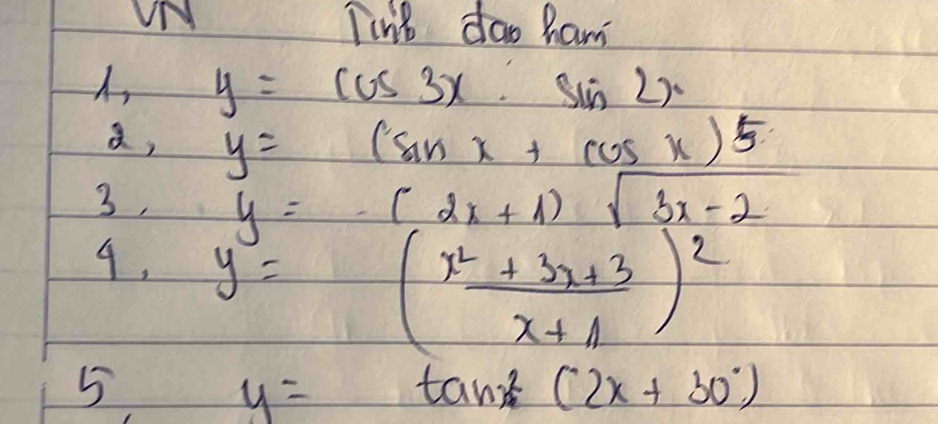 VN Tính đạo hàm
1, y = cos 3x . sin 2x
2, y = (sin x + cos x)^5
3. y = (2x + 1) √(3x - 2)
4, y = ((x² + 3x + 3)/(x + 1))²
5, y = tan (2x + 30°)